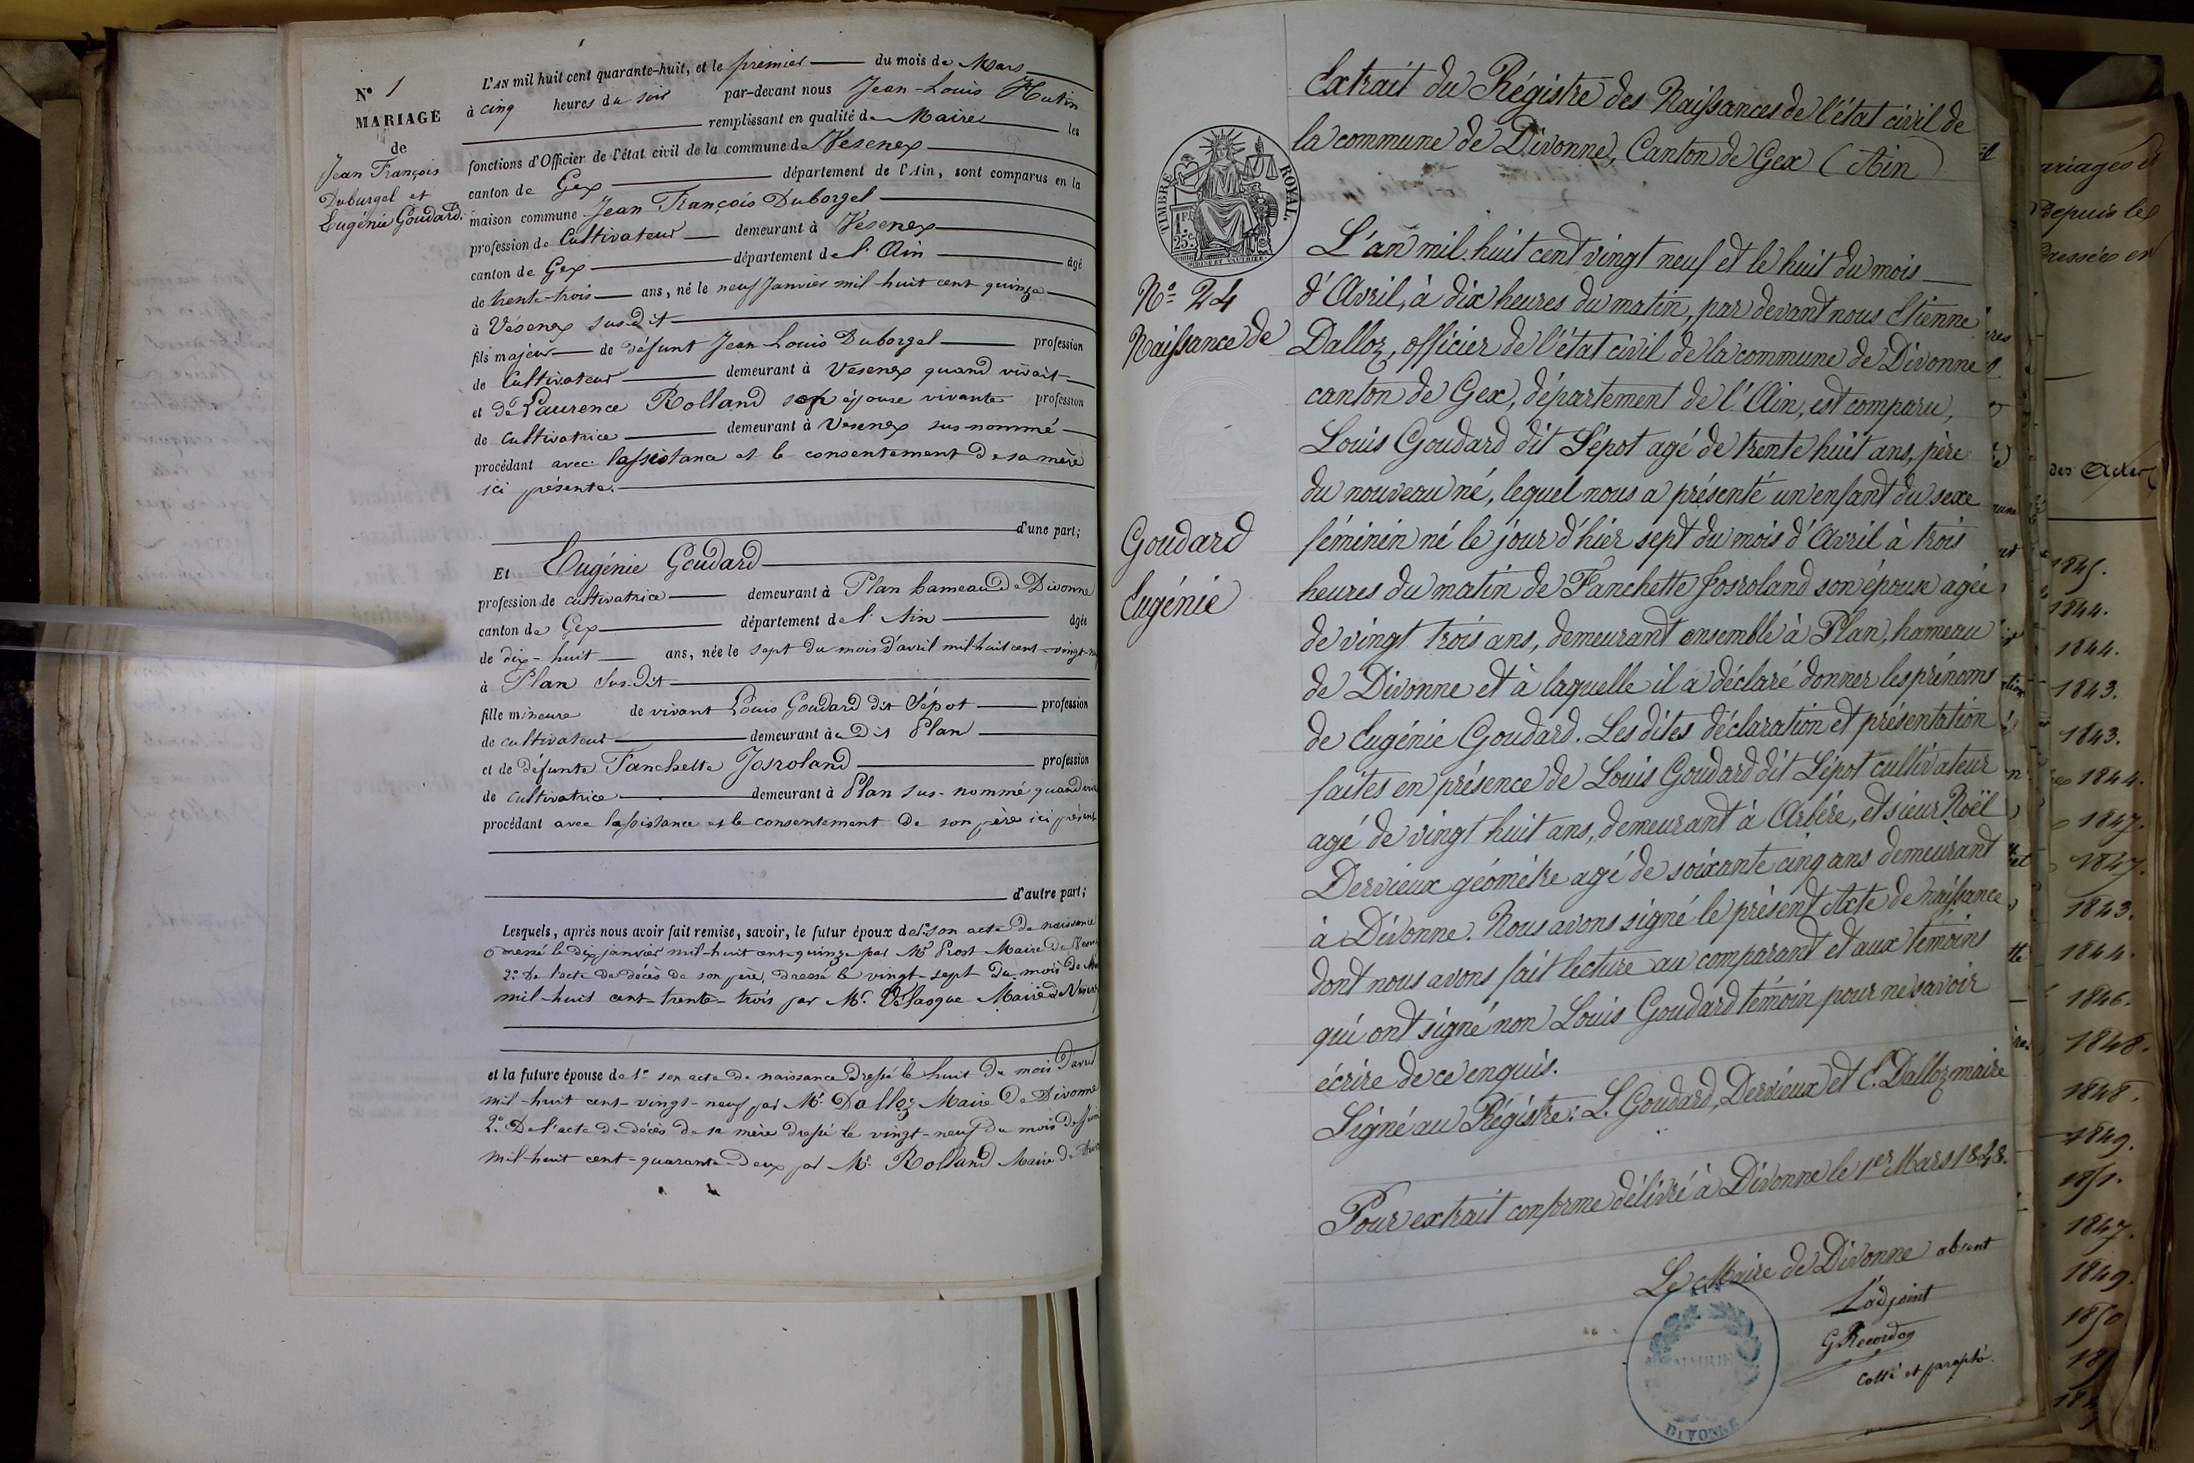 N° 1
MARIAGE
de
Jean François
Duborgel et
Eugénie Goudard.
L'AN mil huit cent quarante-huit, et le premier du mois de Mars
à cinq heures du soir par-devant nous Jean-Louis Hutin
remplissant en qualité de Maire les
fonctions d'Officier de l'état civil de la commune de Vesenex
canton de Gex département de l'Ain, sont comparus en la
maison commune Jean François Duborgel
profession de Cultivateur demeurant à Vesenex
canton de Gex département de l'Ain âgé
de trente-trois ans, né le neuf Janvier mil-huit cent quinze
à Vésenex susdit
fils majeur de défunt Jean Louis Duborgel profession
de Cultivateur demeurant à Vesenex quand vivait
et de Laurence Rolland son épouse vivante profession
de cultivatrice demeurant à Vesenex sus-nommé
procédant avec l'assistance et le consentement de sa mère
ici présente.
d'une part;
Et Eugénie Goudard
profession de cultivatrice demeurant à Plan hameau de Divonne
canton de Gex département de l'Ain âgée
de dix-huit ans, née le sept du mois d'avril mil-huit cent-vingt-
à Plan susdit
fille mineure de vivant Louis Goudard dit Sépot profession
de cultivateur demeurant à Dit Plan
et de défunte Fanchette Josroland profession
de cultivatrice demeurant à Plan sus-nommé quand
procédant avec l'assistance et le consentement de son père ici présent
d'autre part;
Lesquels, après nous avoir fait remise, savoir, le futur époux de 1° son acte de naissance
dressé le dix janvier mil-huit cent-quinze par Mr Prost Maire de
2° De l'acte de décès de son père, dressé le vingt-sept du mois de
mil-huit cent-trente-trois par Mr. Maire de
et la future épouse de 1° son acte de naissance dressé le huit du mois d'avril
mil-huit cent-vingt-neuf par Mr. Dalloz Maire de Divonne
2° De l'acte de décès de sa mère dressé le vingt-neuf du mois de
mil-huit cent-quarante-deux par Mr. Rolland Maire de
Extrait du Régistre des Naissances de l'état civil de
la commune de Divonne, Canton de Gex (Ain)
TIMBRE ROYAL.
1 F.
25 c.
N° 24
Naissance de
Goudard
Eugénie
L'an mil huit cent vingt neuf et le huit du mois
d'Avril, à dix heures du matin, par devant nous Etienne
Dalloz, officier de l'état civil de la commune de Divonne
canton de Gex, département de l'Ain, est comparu,
Louis Goudard dit Sépot agé de trente huit ans, père
du nouveau né, lequel nous a présenté un enfant du sexe
féminin né le jour d'hier sept du mois d'Avril à trois
heures du matin de Fanchette Josroland son épouse agée
de vingt trois ans, demeurant ensemble à Plan, hameau
de Divonne et à laquelle il a déclaré donner les prénoms
de Eugénie Goudard. Les dites déclaration et présentation
faites en présence de Louis Goudard dit Sépot cultivateur
agé de vingt huit ans, demeurant à Arbère, et sieur Noël
Dervieux géomètre agé de soixante cinq ans demeurant
à Divonne. Nous avons signé le présent Acte de naissance
dont nous avons fait lecture au comparant et aux témoins
qui ont signé non Louis Goudard témoin pour ne savoir
écrire de ce enquis.
Signé au Régistre: L. Goudard, Dervieux et E. Dalloz maire
Pour extrait conforme délivré à Divonne le 1er Mars 1848.
Le Maire de Divonne absent
L'adjoint
G Recordon
Coté et paraphé.
MAIRIE
DIVONNE
ariages
Depuis les
des Actes
1845.
1844.
1844.
1843.
1843.
1844.
1847.
1847.
1843.
1844.
1846.
1848.
1848.
1849.
1851.
1847.
1849.
1850